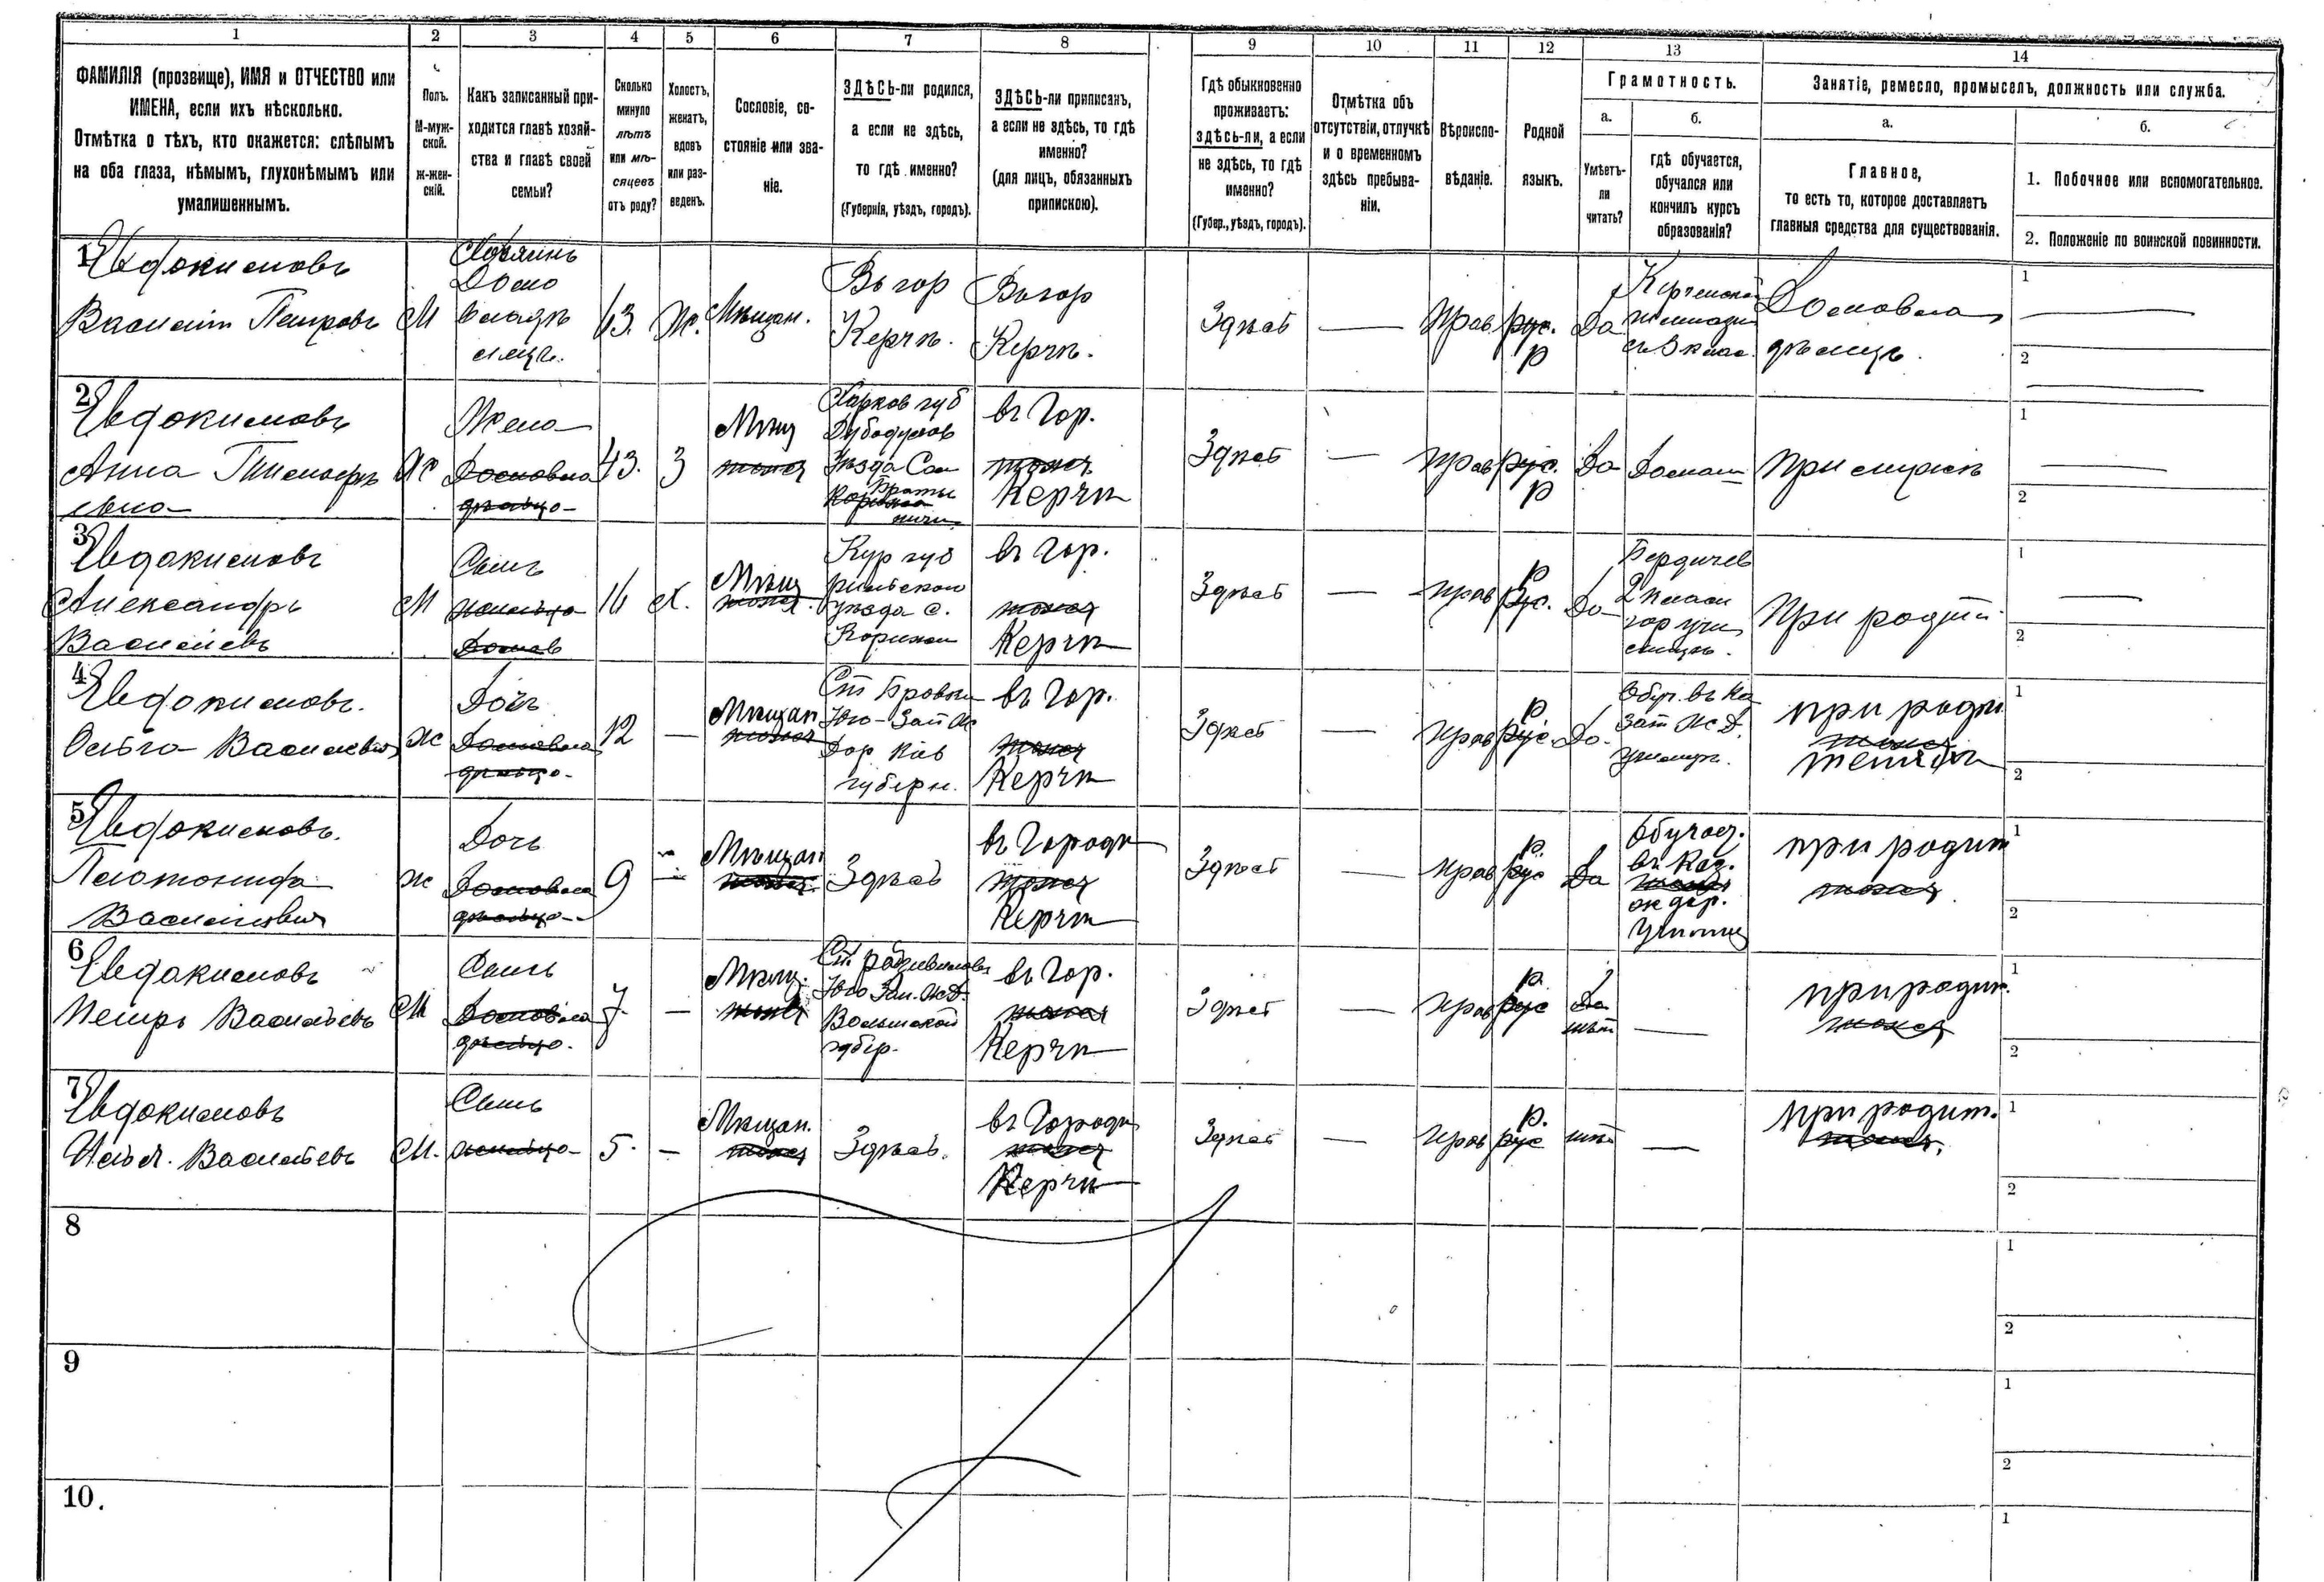 1 2 3 4 5 6 7 8 9 10 11 12 13 14
ФАМИЛІЯ (прозвище), ИМЯ и ОТЧЕСТВО или
ИМЕНА, если ихъ нѣсколько.
Отмѣтка о тѣхъ, кто окажется: слѣпымъ
на оба глаза, нѣмымъ, глухонѣмымъ или
умалишеннымъ.
Полъ.
М-муж-
ской.
Ж-жен-
скій.
Какъ записанный при-
ходится главѣ хозяй-
ства и главѣ своей
семьи?
Сколько
минуло
лѣтъ
или мѣ-
сяцевъ
отъ роду?
Холостъ,
женатъ,
вдовъ
или раз-
веденъ.
Сословіе, со-
стояніе или зва-
ніе.
ЗДѢСЬ-ли родился,
а если не здѣсь,
то гдѣ именно?
(Губернія, уѣздъ, городъ).
ЗДѢСЬ-ли приписанъ,
а если не здѣсь, то гдѣ
именно?
(для лицъ, обязанныхъ
припискою).
Гдѣ обыкновенно
проживаетъ:
здѣсь-ли, а если
не здѣсь, то гдѣ
именно?
(Губер., уѣздъ, городъ).
Отмѣтка объ
отсутствіи, отлучкѣ
и о временномъ
здѣсь пребыва-
ніи.
Вѣроиспо-
вѣданіе.
Родной
языкъ.
Грамотность.
а.
Умѣетъ-
ли
читать?
б.
гдѣ обучается,
обучался или
кончилъ курсъ
образованія?
Занятіе, ремесло, промыселъ, должность или служба.
а.
Главное,
то есть то, которое доставляетъ
главныя средства для существованія.
б.
1. Побочное или вспомогательное.
2. Положеніе по воинской повинности.
1
Евдокимовъ
Василій Петровъ
М
Хозяинъ
Домо
владѣ
лецъ.
43.
Ж.
Мѣщан.
Въ гор
Керчи.
Въ гор
Керчи.
Здѣсь
—
Прав
рус.
р
Да
Керченской
гимназіи
Домовла
дѣлецъ.
1
2
2
Евдокимовъ
Анна Тимофѣ
евна
Ж
Жена
Домовла
дѣльца
43.
З
Мѣщ
тоже
Харков губ
Уѣзда
въ Гор.
тоже
Керчи
Здѣсь
—
Прав
рус.
р
Да
Домаш
При мужѣ
1
2
3
Евдокимовъ
Александръ
Васильевъ
М
Сынъ
16
Х.
Мѣщ
тоже.
Кур губ
Рыльскаго
уѣзда с.
въ Гор.
тоже
Керчи
Здѣсь
—
прав
р
рус.
Да
Бердичев
2 класн
гор учи
лище.
При родит
1
2
4
Евдокимовъ.
Ольга Васильевна
Ж
Дочь
Домовла
дѣльца
12
—
Мѣщан
тоже
Ст Бровки
Юго-Зап Ж
Дор Кіев
губерн.
въ Гор.
тоже
Керчи
Здѣсь
—
Прав
р
рус.
Да.
Обуч. въ
Зап Ж Д.
училищѣ.
при роди
тоже
теляхъ
1
2
5
Евдокимовъ.
Платонида
Васильевна
ж
Дочь
Домовла
дѣльца
9
—
Мѣщан
тоже
Здѣсь
въ Городѣ
тоже
Керчи
Здѣсь
—
прав
р.
рус
Да
Обучает.
въ Каз.
ж дор.
Училищ
при родит
тоже
1
2
6
Евдокимовъ
Петръ Васильевъ
М
Сынъ
Домовла
дѣльца.
7.
—
Мѣщ.
тоже
Ст. Радзивиловъ
Юго Зап. Ж Д.
Волынской
губер.
въ Гор.
тоже
Керчи
Здѣсь
—
прав
р.
рус
Да
нѣт
—
при родит.
тоже
1
2
7
Евдокимовъ
Илья. Васильевъ
М.
Сынъ
5.
—
Мѣщан.
тоже
Здѣсь.
въ Городѣ
тоже
Керчи
Здѣсь
—
прав
р.
рус
нѣт
—
при родит.
тоже.
1
2
8
1
2
9
1
2
10.
1